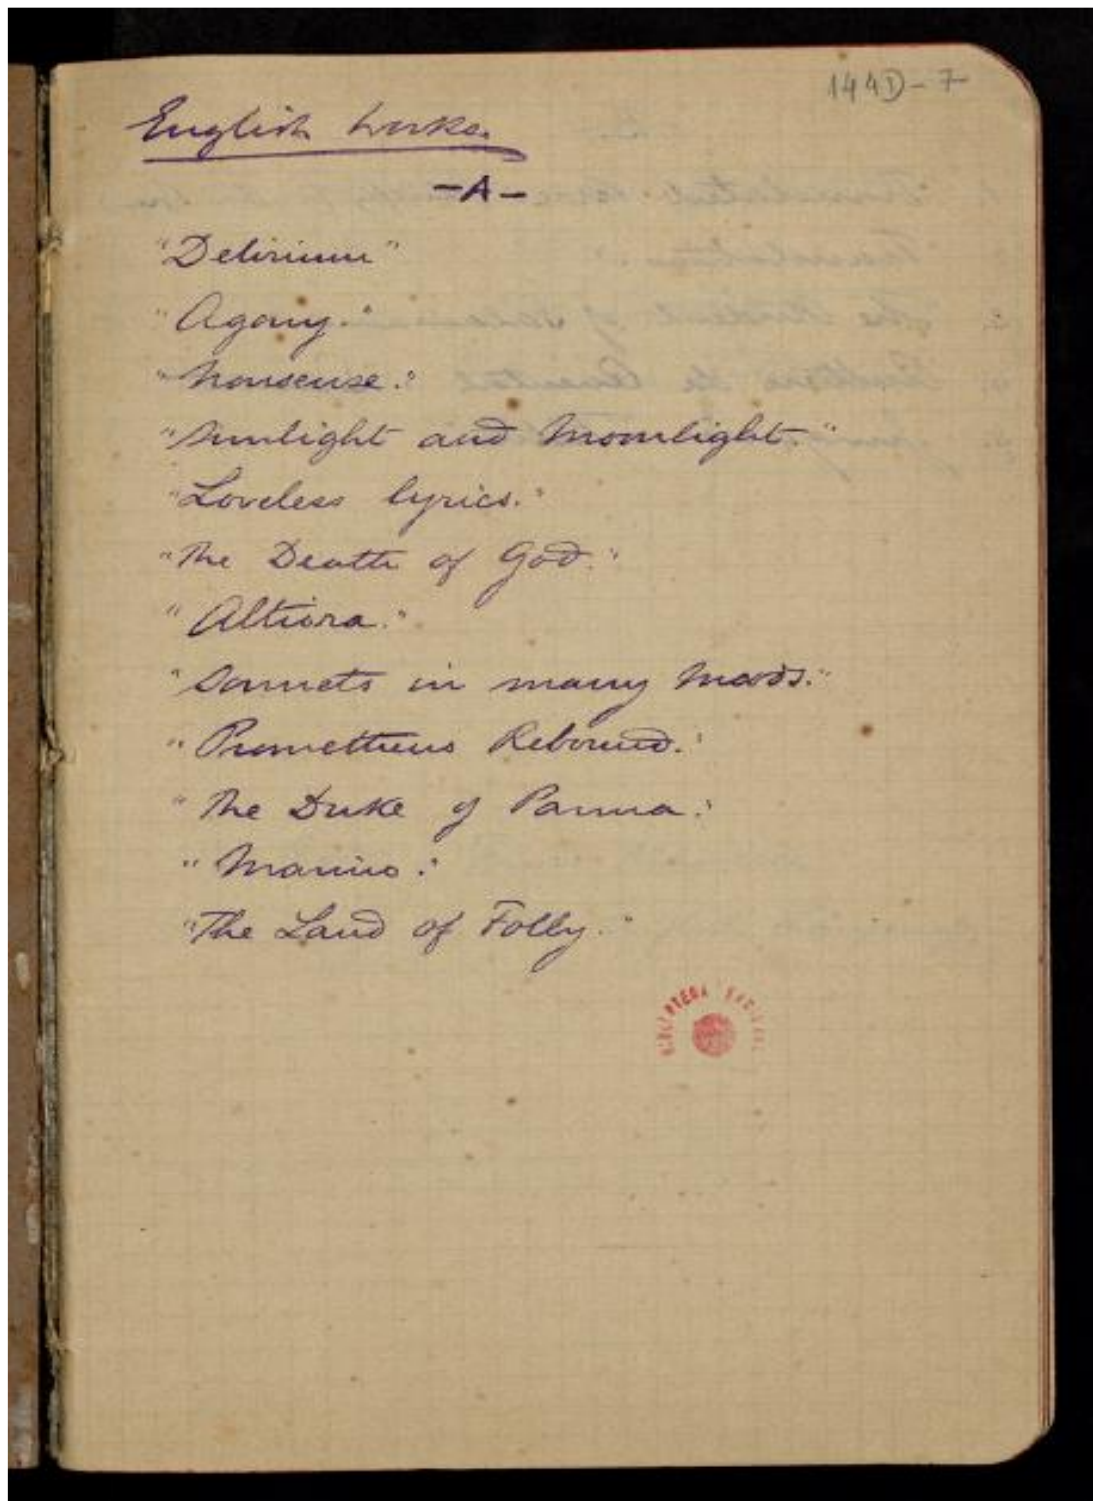 144D-7
English works.
-A-
"Delirium"
"Agony."
"Nonsense."
"Sunlight and Moonlight."
"Loveless lyrics."
"The Death of God."
"Altiora."
"Sonnets in many moods."
"Prometheus Rebound."
"The Duke of Parma."
"Marino."
"The Land of Folly."